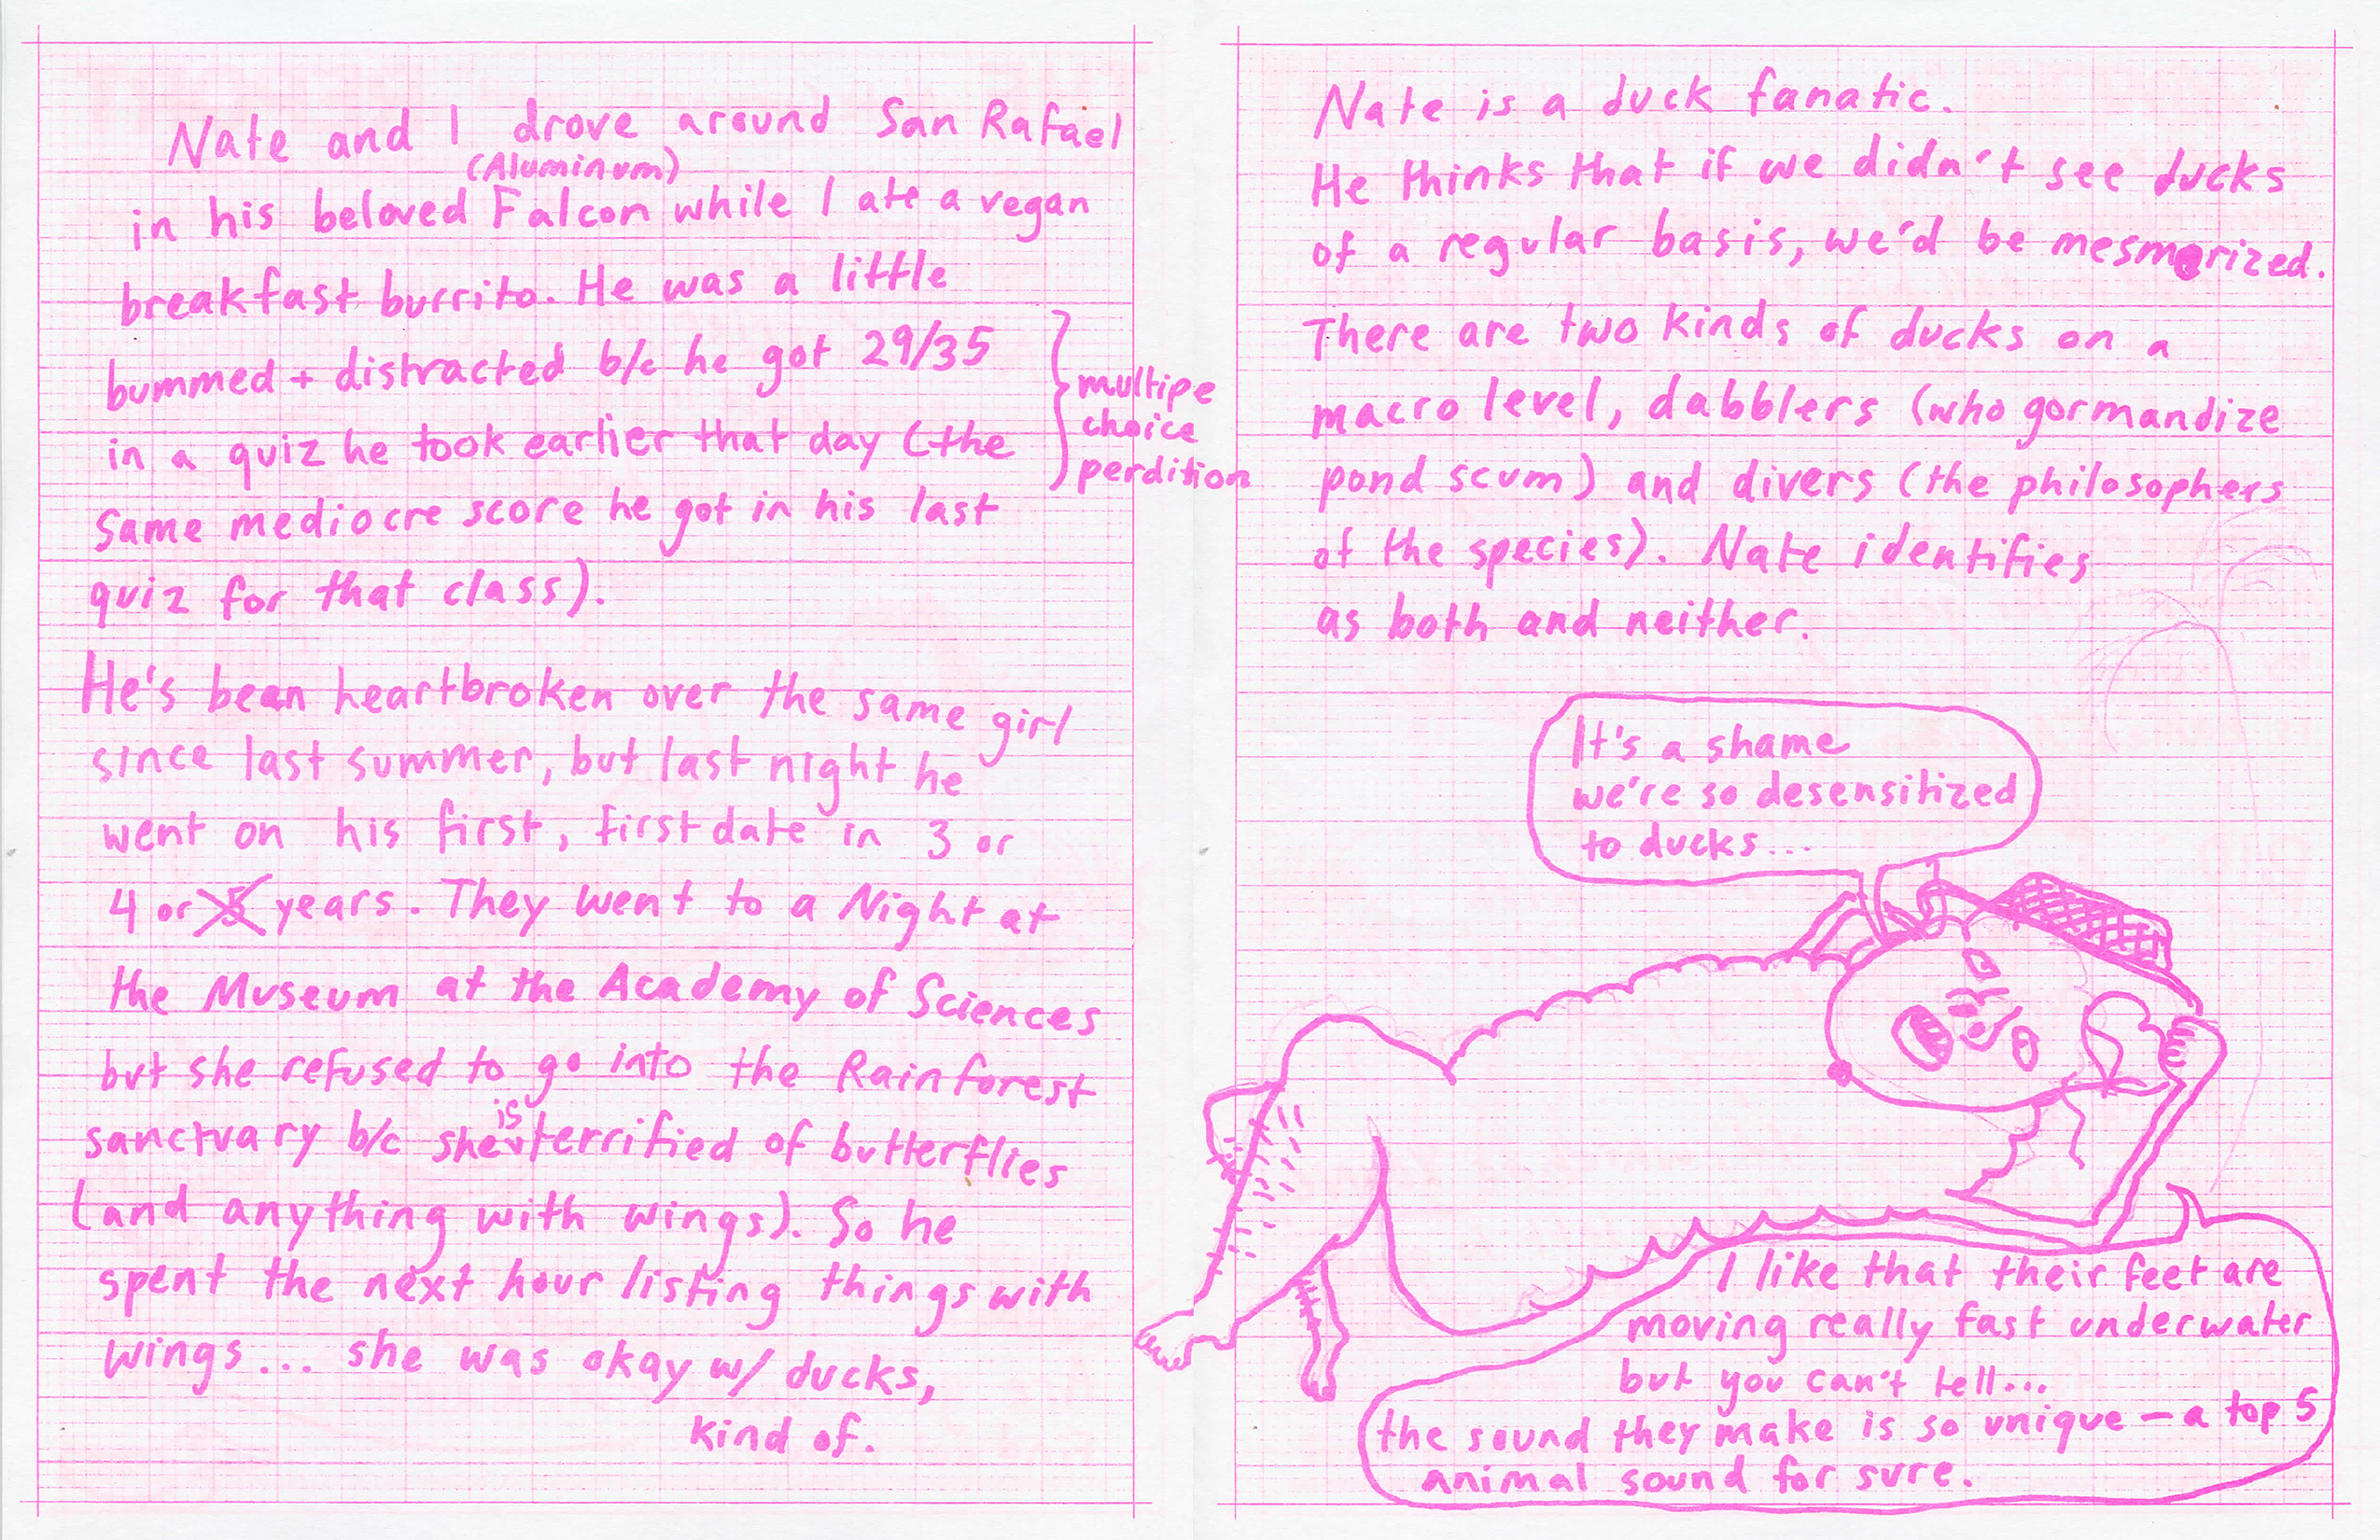 Nate and I drove around San Rafael
(Aluminum)
in his beloved Falcon while I ate a vegan
breakfast burrito. He was a little
bummed + distracted b/c he got 29/35
in a quiz he took earlier that day (the
same mediocre score he got in his last
quiz for that class).
multipe
choice
perdition
He's been heartbroken over the same girl
since last summer, but last night he
went on his first, first date in 3 or
4 or 5 years. They went to a Night at
the Museum at the Academy of Sciences
but she refused to go into the Rainforest
is
sanctuary b/c she terrified of butterflies
(and anything with wings). So he
spent the next hour listing things with
wings... she was okay w/ ducks,
kind of.
Nate is a duck fanatic.
He thinks that if we didn't see ducks
of a regular basis, we'd be mesmerized.
There are two kinds of ducks on a
macro level, dabblers (who gormandize
pond scum) and divers (the philosophers
of the species). Nate identifies
as both and neither.
It's a shame
we're so desensitized
to ducks...
I like that their feet are
moving really fast underwater
but you can't tell...
the sound they make is so unique — a top 5
animal sound for sure.